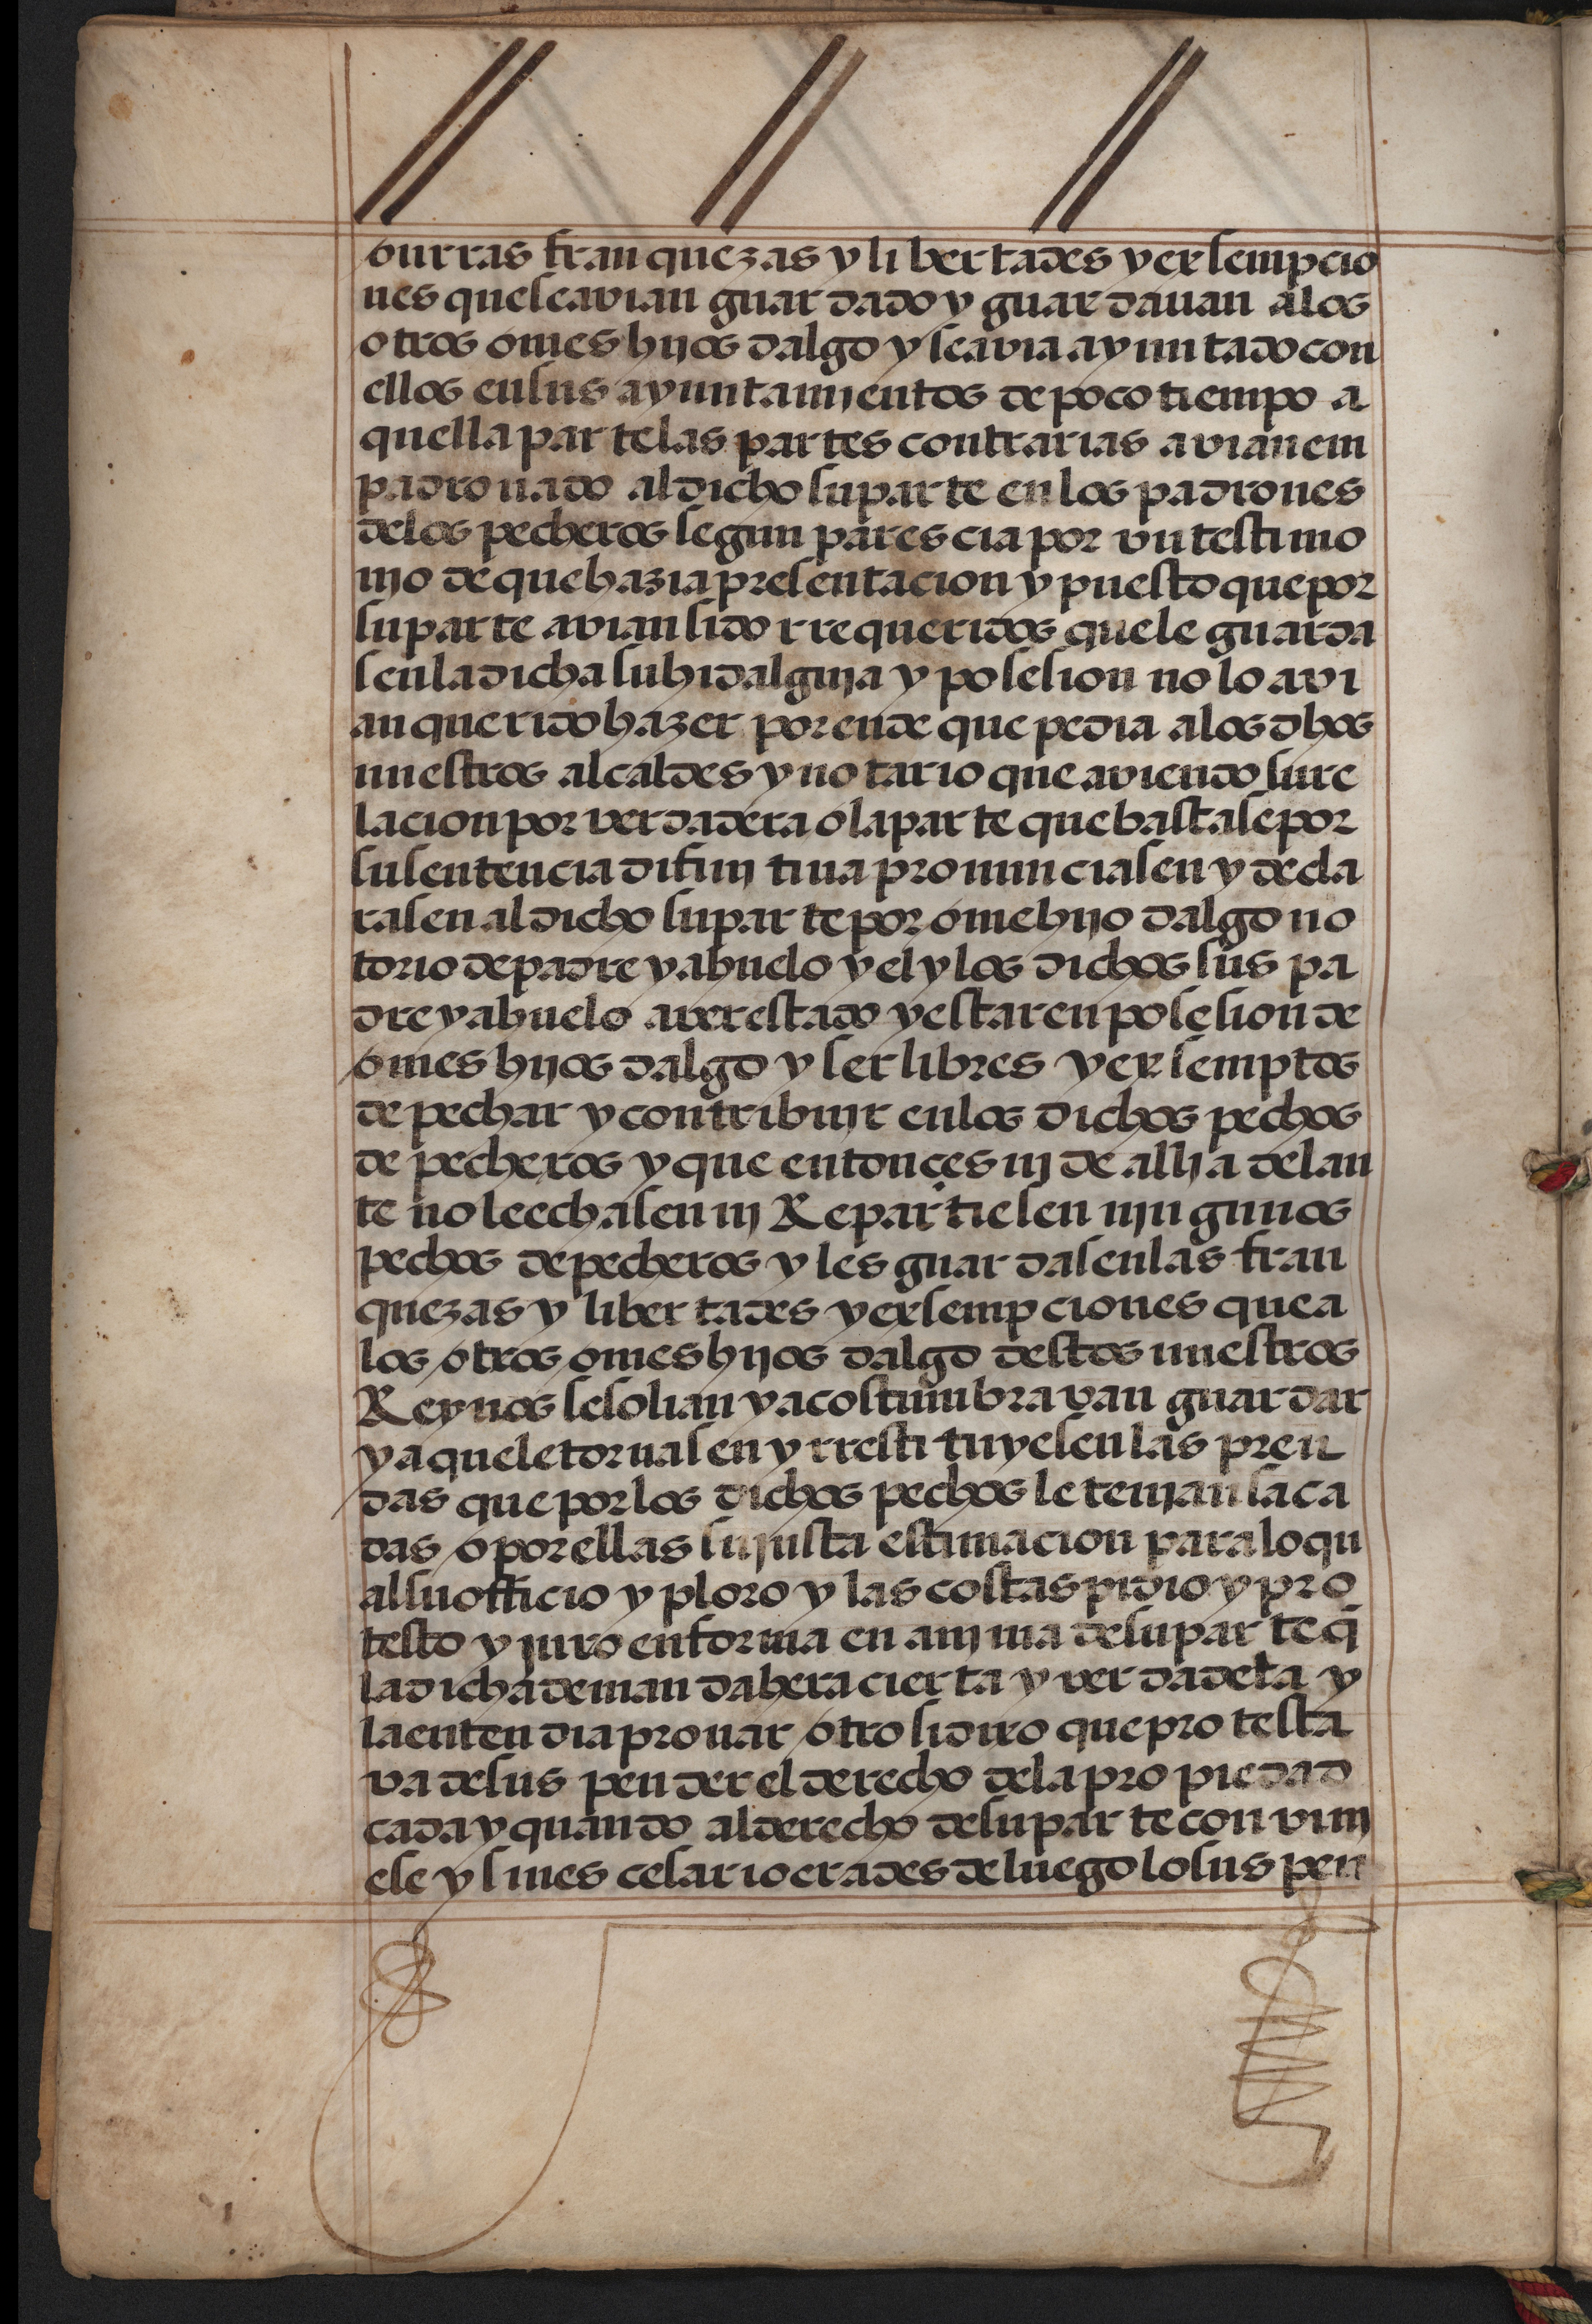 onrras franquezas y libertades y exsempcio
nes que se avian guardado y guardauan a los
otros omes hijos dalgo y se avia ayuntado con
ellos en sus ayuntamjentos de poco tiempo a
quella parte las partes contrarias avian em
padronado al dicho su parte en los padrones
de los pecheros segun parescia por vn testimo
njo de que hazia presentacion y puesto que por
su parte avian sido rrequeridos que le guarda
sen la dicha su hidalguja y posesion no lo avi
an querido hazer por ende que pedia a los dhos
nuestros alcaldes y notario que aviendo su re
lacion por verdadera o la parte que bastase por
su sentencia difinjtiua pronunciasen y decla
rasen al dicho su parte por ome hijo dalgo no
torio de padre y abuelo y el y los dichos sus pa
dre y abuelo aver estado y estar en posesion de
omes hijos dalgo y ser libres y exsemptos
de pechar y contribujr en los dichos pechos
de pecheros y que entonces nj de allj adelan
te no le echasen nj Repartiesen njngunos
pechos de pecheros y les guardasen las fran
quezas y libertades y exsempciones que a
los otros omes hijos dalgo destos nuestros
Reynos se solian y acostumbravan guardar
y a que le tornasen y rrestituyesen las pren
das que por los dichos pechos le tenjan saca
das o por ellas su justa estimacion para lo qu
al su officio y ploro y las costas pidio y pro
testo y juro en forma en anjma de su parte q̃
la dicha demanda hera cierta y verdadera y
la entendia prouar otro si dixo que protesta
va de suspender el derecho de la propiedad
cada y quando al derecho de su parte convinj
ese y si nescesario era desde luego lo suspen